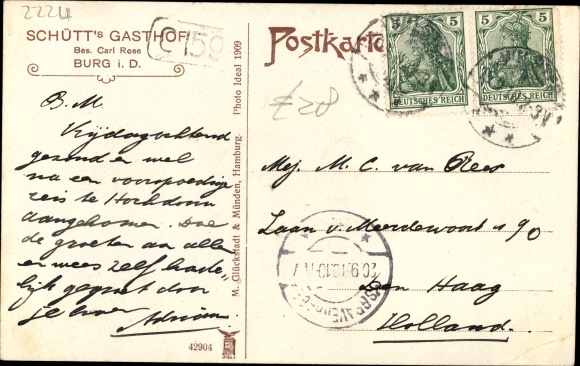 2224
SCHÜTT'S GASTHOF
Bes. Carl Rose
BURG i. D.
C 159
Postkarte
5 5
5 5
DEUTSCHES REICH
DEUTSCHES REICH
£28
B. M.
Vrijdagochtend
gezond en wel
na een voorspoedige
reis te Hochdonn
aangekomen. Doe
de groeten aan allen
en wees zelf harte-
lijk gegroet door
je broer
Adriaan.
M. Glückstadt & Münden, Hamburg. Photo Ideal 1909
42904
Mej. M. C. van Rees
Laan v. Meerdervoort 190
den Haag
Holland.
'S GRAVENHAGE
20.9.10.